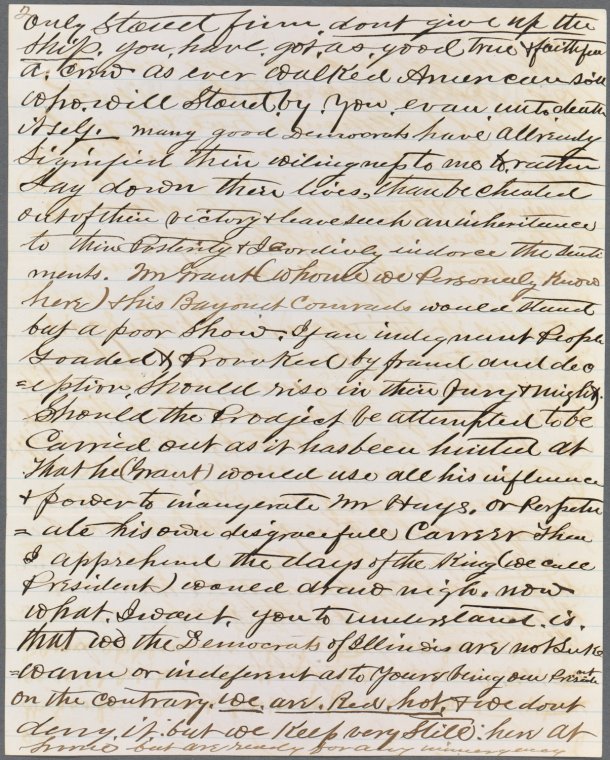 2
Only Stand firm. dont give up the
Ship. you. have. got. as. good true & faithful
a. crew as ever walked American soil
who. will Stand. by. you. evan unto death
itself. many good Democrats have allready
Signified their willingness to me to rather
Lay down their lives, than be cheated
out of their victory & leave such an inheritence
to their Posterity & I cordively indorce the senti
ments. Mr Grant (whome we Personely Know
here) & his Bayonet Comrads would stand
but a poor Show. If an indegnent People
Goaded & Provoked by fraud and dec
=eption. Should rise in their fury & might.
Should the Prodject be attempted to be
Carried out as it has been hinted at
that he (Grant) would use all his influence
& power to inaugerate Mr Hays. or Perpetu
=ate his own disgracefull Carreer then
I apprehend the days of the King (we call
President) would draw nigh. now
what. I want. you to understand. is.
that we the Democrats of Illinois are not Luke
=warm or indeferent as to Youre being our President
on the contrary. we. are. Red. hot. & we dont
deny. it. but we Keep very Still. here at
home but are ready for any immergency